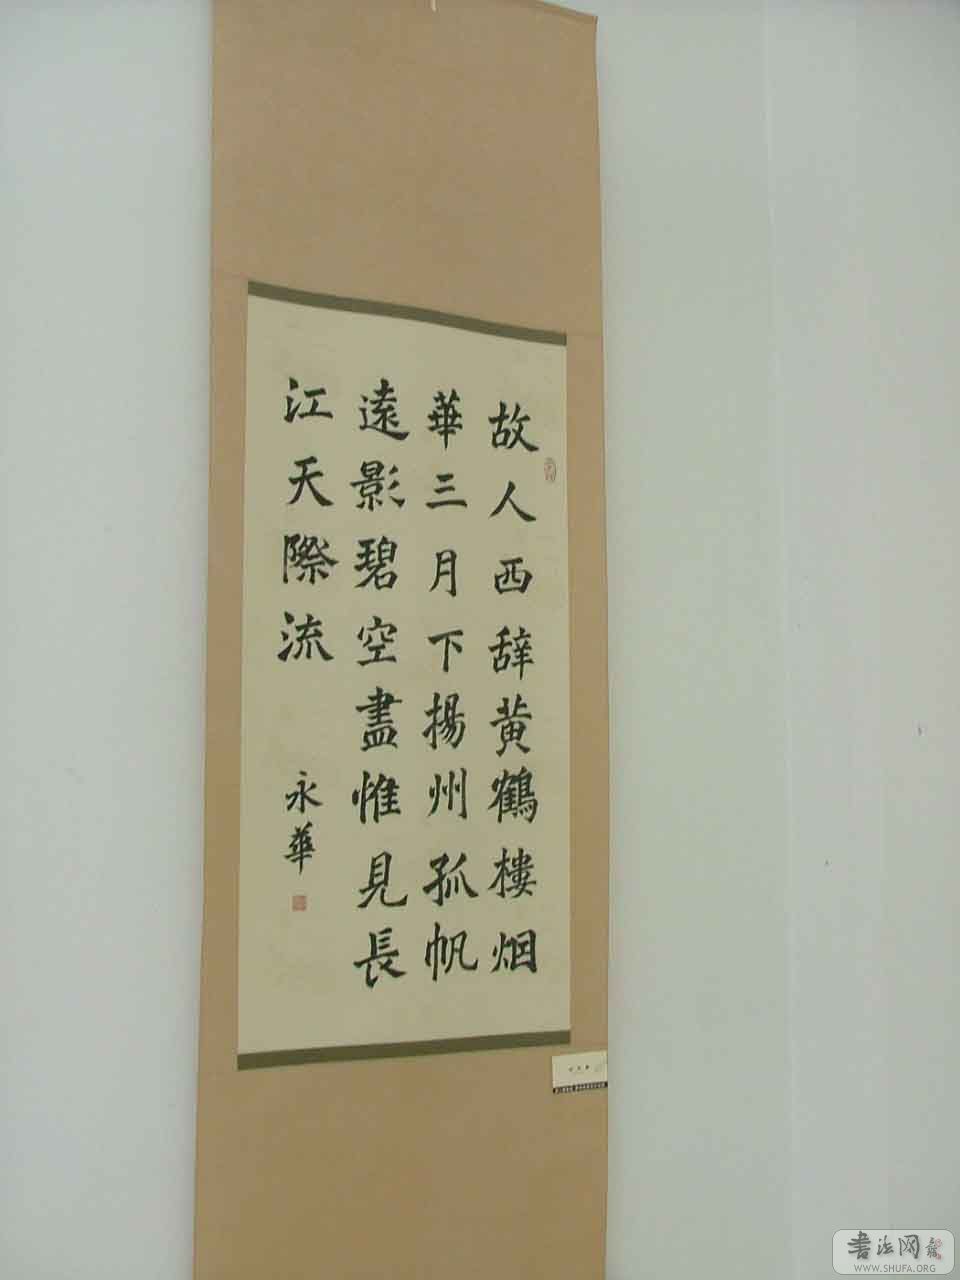 故人西辞黄鶴楼烟
華三月下揚州孤帆
遠影碧空盡惟見長
江天際流
永華
書法网
WWW.SHUFA.ORG